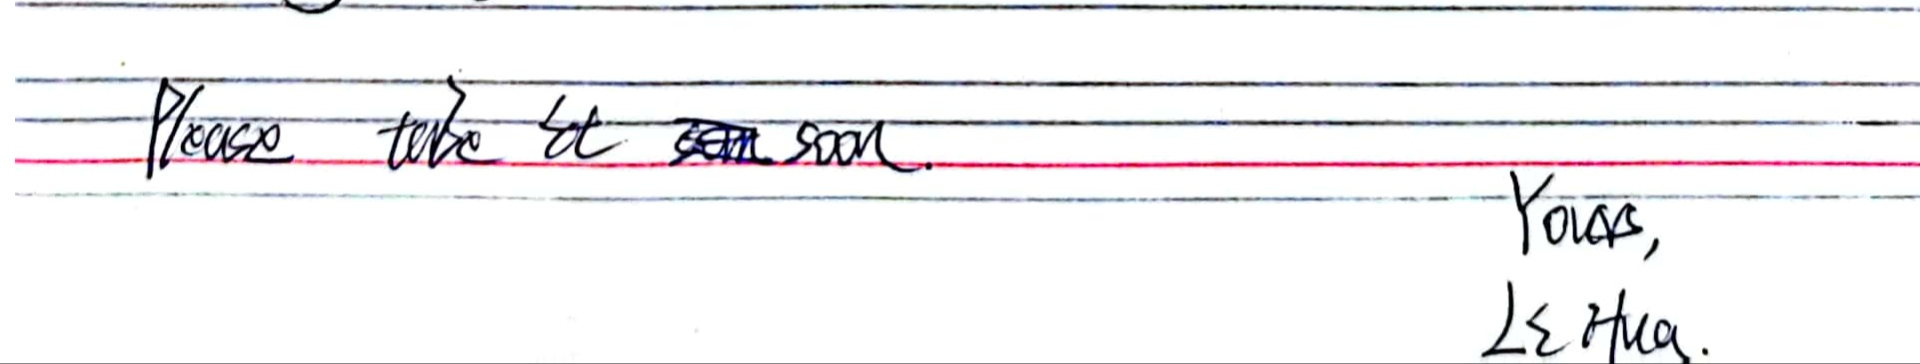 Please take it soon.
Yours,
Li Hua.